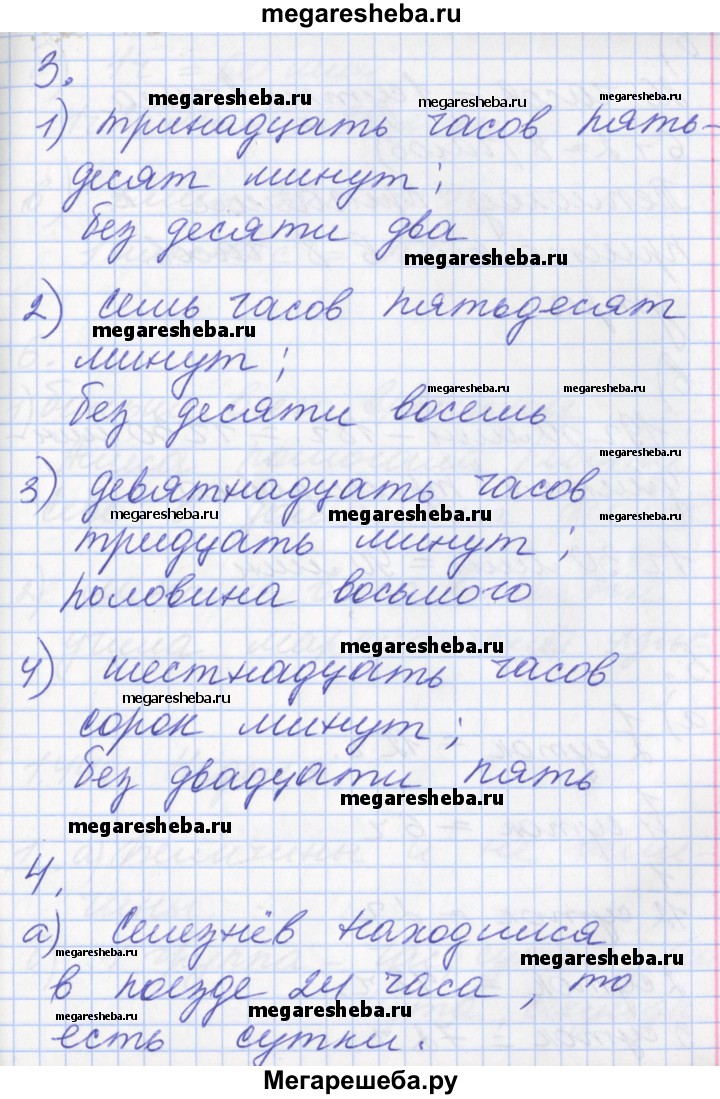 megaresheba.ru
3.
megaresheba.ru megaresheba.ru
1) тринадцать часов пять-
десят минут;
без десяти два
megaresheba.ru
2) семь часов пятьдесят
megaresheba.ru
минут;
megaresheba.ru megaresheba.ru
без десяти восемь
megaresheba.ru
3) девятнадцать часов
megaresheba.ru megaresheba.ru megaresheba.ru
тридцать минут;
половина восьмого
megaresheba.ru
4) шестнадцать часов
megaresheba.ru
сорок минут;
без двадцати пять
megaresheba.ru
megaresheba.ru
4.
а) Селезнёв находился
megaresheba.ru megaresheba.ru
в поезде 24 часа, то
megaresheba.ru
есть сутки.
megaresheba.ru
Мегарешеба.ру